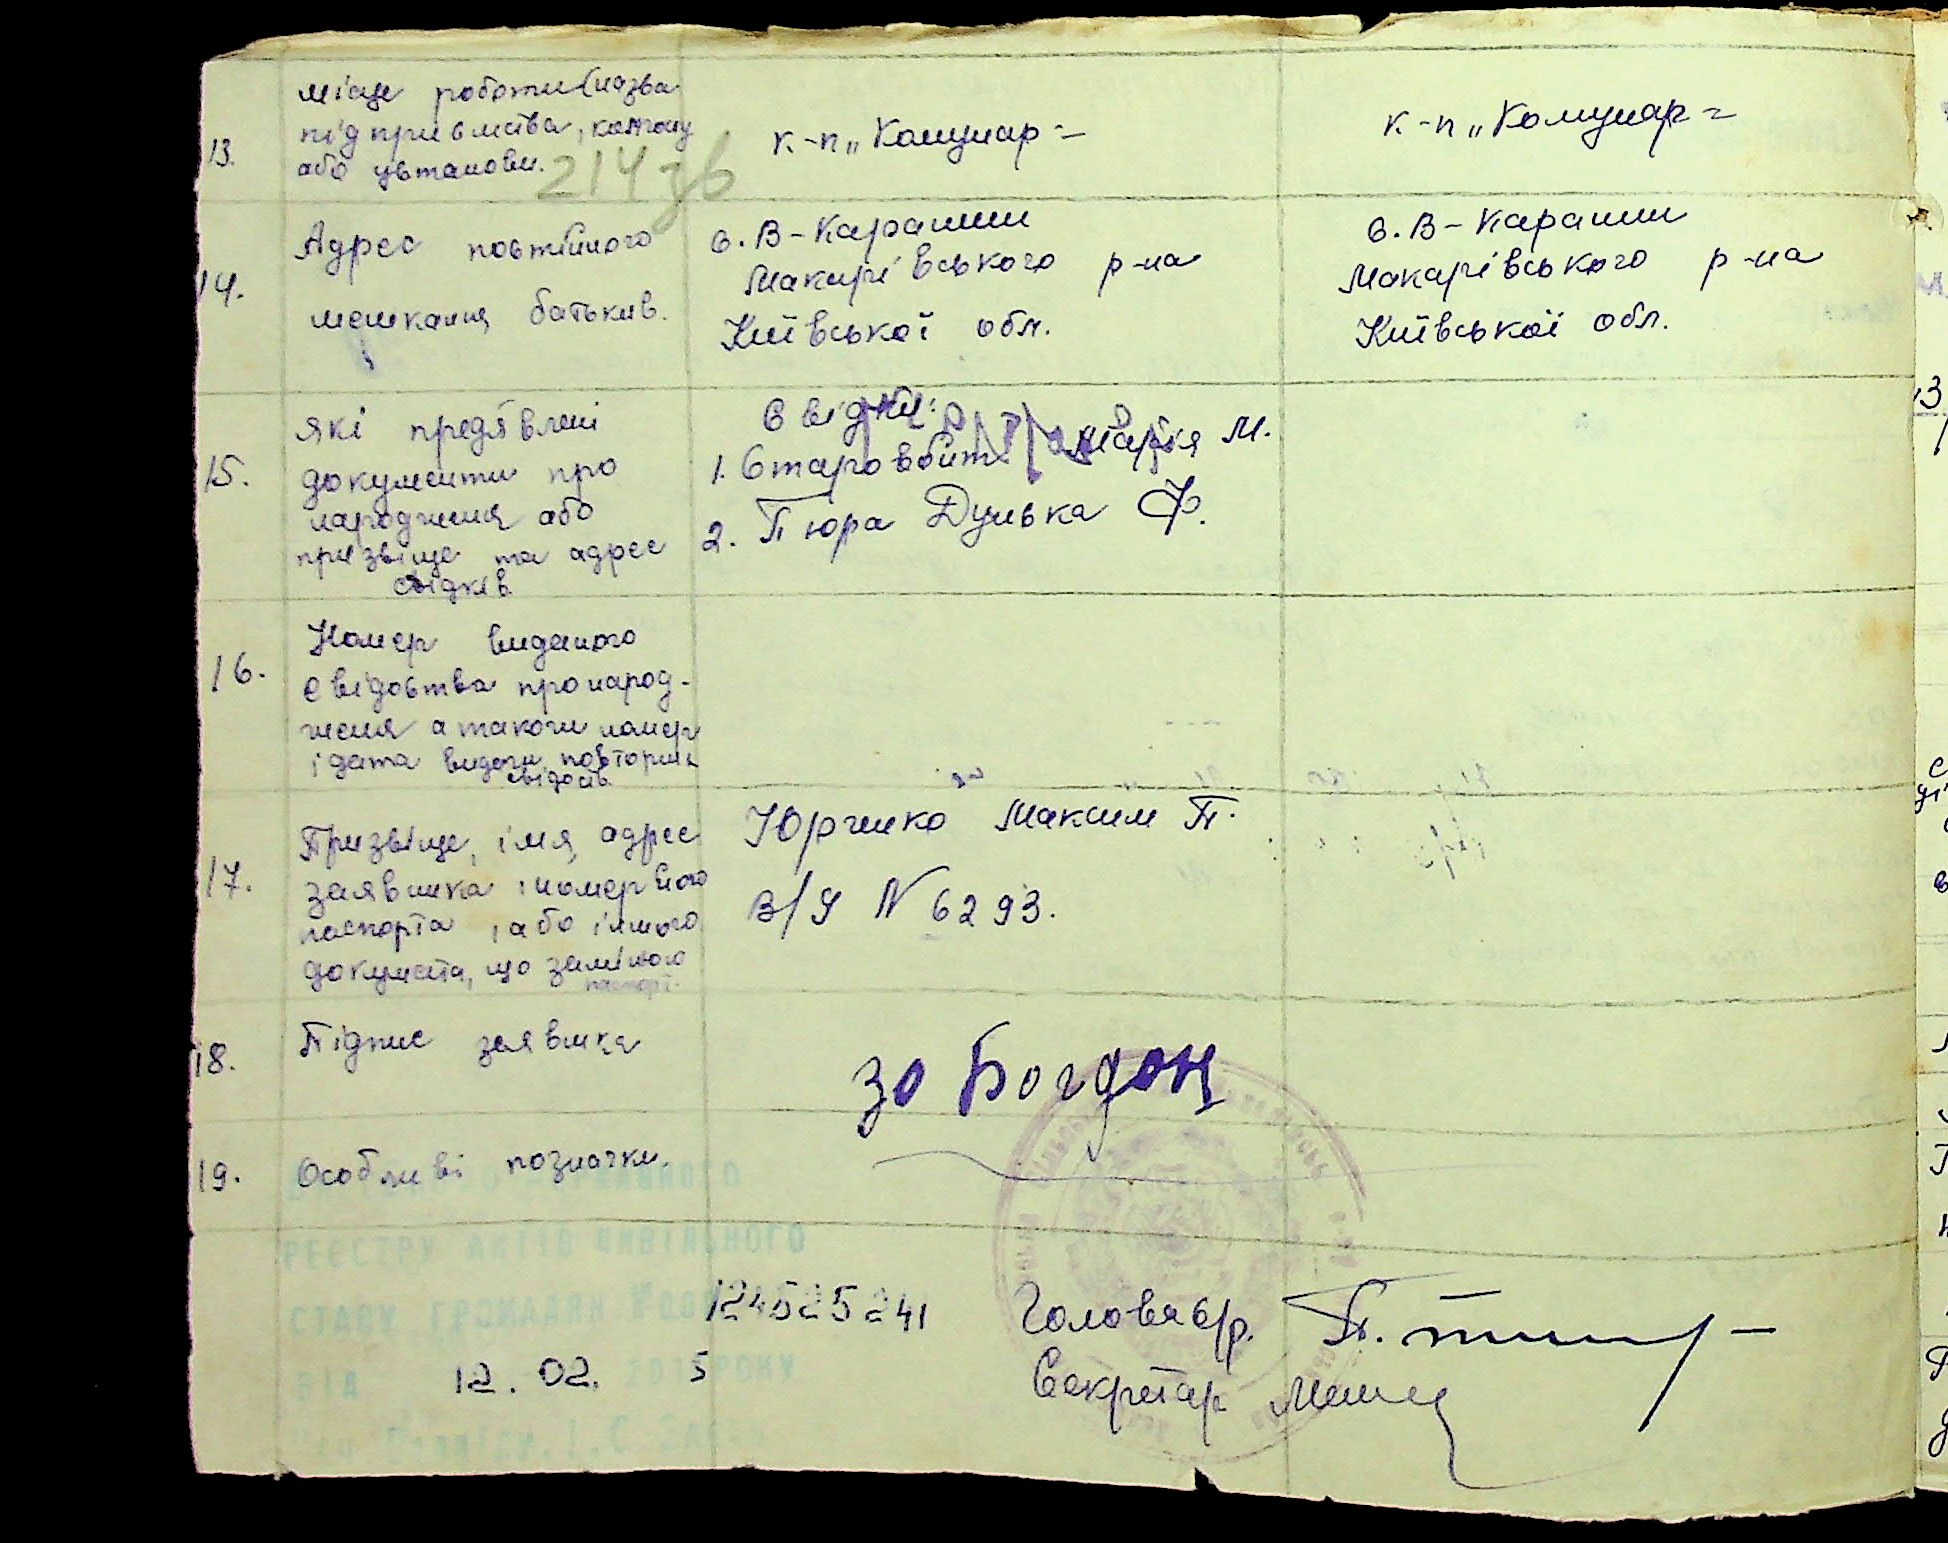 13.
місце роботи (назва
підприємства, колгоспу
або установи.
214 зв
к-п „Комунар"
к-п „Комунар"
14.
Адрес постійного
мешкання батьків.
с. В-Карашин
Макарівського р-на
Київської обл.
с. В-Карашин
Макарівського р-на
Київської обл.
15.
які предявлені
документи про
народження або
призвіще та адрес
свідків
Свідки:
1. Старовбит Марія М.
2. Пюра Дунька Ф.
16.
Номер виданого
свідоства про народ-
женя а також номер
і дата видачи повторних
свідоцв.
17.
Призвіще, імя, адрес
заявника і номер його
паспорта, або іншого
документа, що замінює
паспорт.
Юрченко Максим П.
В/У N 6293.
18.
Підпис заявника
за Богдан
19.
Особливі позначки.
ДЕРЖАВНОГО
РЕЄСТРУ АКТІВ ЦИВІЛЬНОГО
СТАНУ ГРОМАДЯН
124525241
ВІД 12.02. 2015 РОКУ
Голова с/р.
Секретар